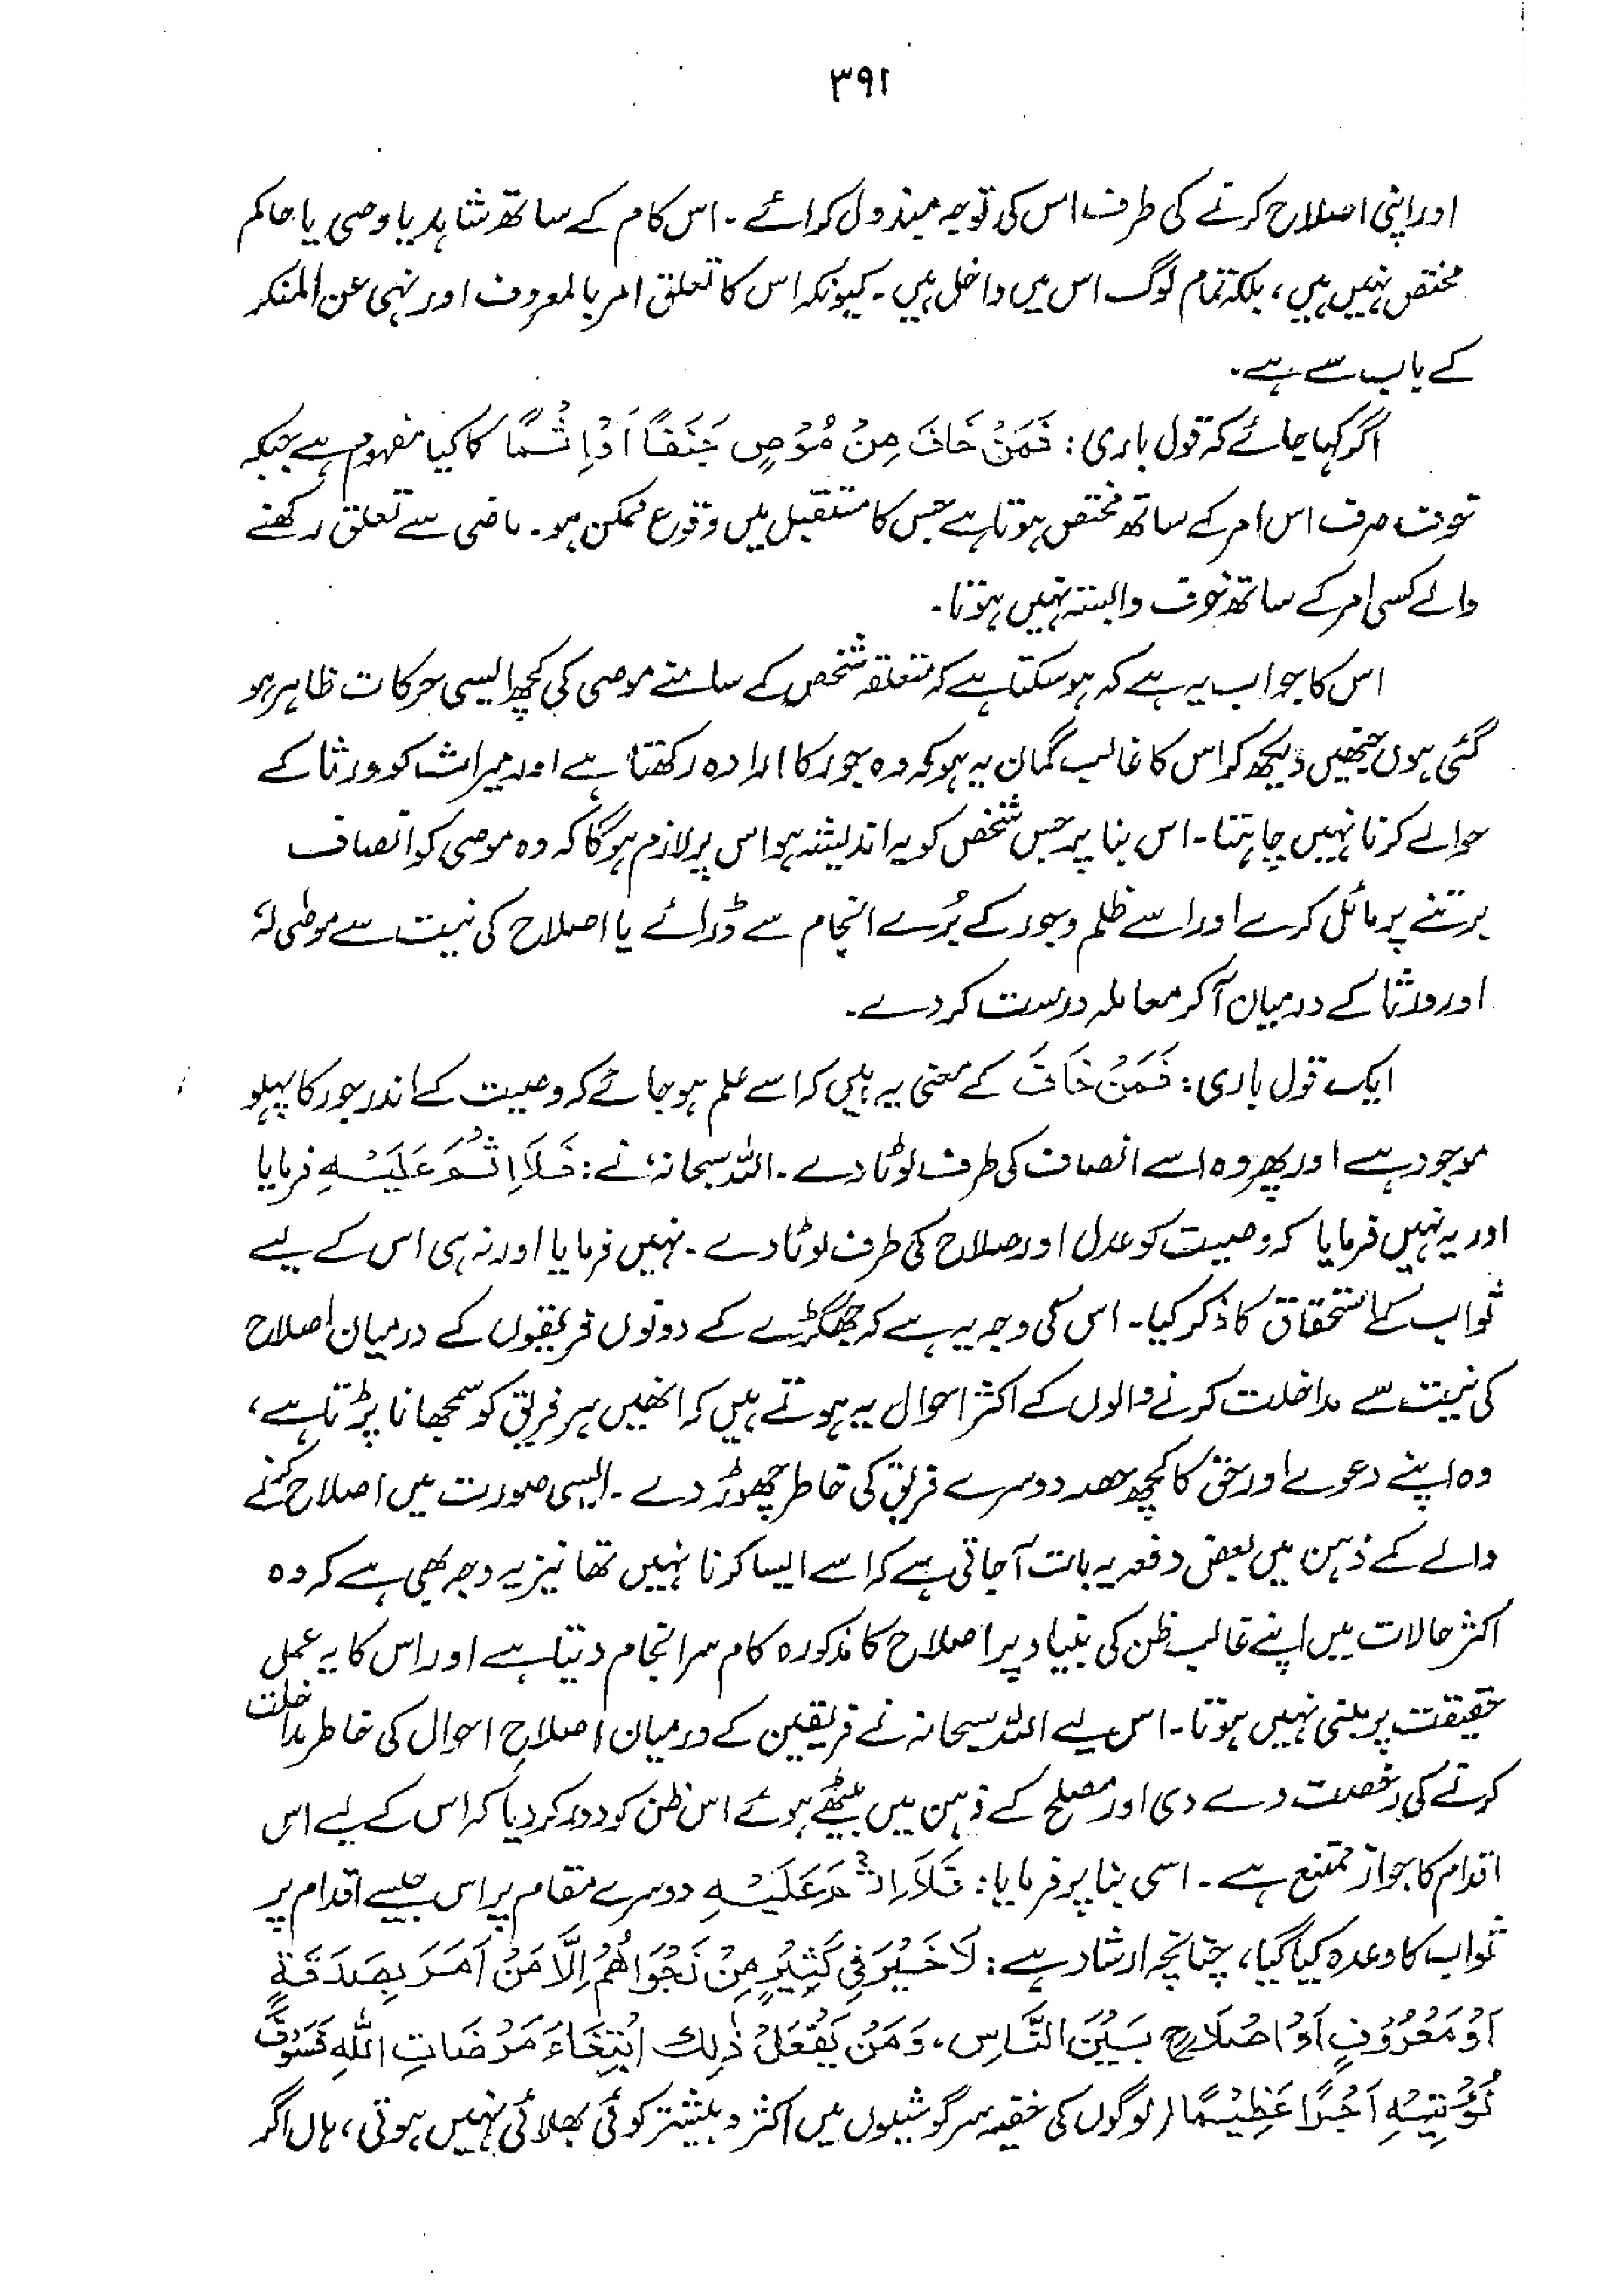 ۳۹۱
اور اپنی اصلاح کرنے کی طرف اس کی توجہ مبذول کرائے۔ اس کام کے ساتھ شاہد یا وصی یا حاکم
مختص نہیں ہیں، بلکہ تمام لوگ اس میں داخل ہیں۔ کیونکہ اس کا تعلق امر بالمعروف اور نہی عن المنکر
کے باب سے ہے۔
اگر کہا جائے کہ قول باری: فَمَنْ خَافَ مِنْ مُّوْصٍ جَنَفًا اَوْ اِثْمًا کا کیا مفہوم ہے جبکہ
خوف صرف اس امر کے ساتھ مختص ہوتا ہے جس کا مستقبل میں وقوع ممکن ہو۔ ماضی سے تعلق رکھنے
والے کسی امر کے ساتھ خوف وابستہ نہیں ہوتا۔
اس کا جواب یہ ہے کہ ہو سکتا ہے کہ متعلقہ شخص کے سامنے موصی کی کچھ ایسی حرکات ظاہر ہو
گئی ہوں جنھیں دیکھ کر اس کا غالب گمان یہ ہو کہ وہ جور کا ارادہ رکھتا ہے اور میراث کو ورثا کے
حوالے کرنا نہیں چاہتا۔ اس بنا پر جس شخص کو یہ اندیشہ ہو اس پر لازم ہوگا کہ وہ موصی کو انصاف
برتنے پر مائل کرے اور اسے ظلم و جور کے بُرے انجام سے ڈرائے یا اصلاح کی نیت سے موصٰی لہٗ
اور ورثا کے درمیان آکر معاملہ درست کر دے۔
ایک قول باری: فَمَنْ خَافَ کے معنی یہ ہیں کہ اسے علم ہو جائے کہ وصیت کے اندر جور کا پہلو
موجود ہے اور پھر وہ اسے انصاف کی طرف لوٹا دے۔ اللہ سبحانہٗ نے: فَلَا اِثْمَ عَلَيْهِ فرمایا
اور یہ نہیں فرمایا کہ وصیت کو عدل اور صلاح کی طرف لوٹا دے۔ نہیں فرمایا اور نہ ہی اس کے لیے
ثواب کے استحقاق کا ذکر کیا۔ اس کی وجہ یہ ہے کہ جھگڑے کے دونوں فریقوں کے درمیان اصلاح
کی نیت سے مداخلت کرنے والوں کے اکثر احوال یہ ہوتے ہیں کہ انھیں ہر فریق کو سمجھانا پڑتا ہے،
وہ اپنے دعوے اور حق کا کچھ حصہ دوسرے فریق کی خاطر چھوڑ دے۔ ایسی صورت میں اصلاح کرنے
والے کے ذہن میں بعض دفعہ یہ بات آجاتی ہے کہ اسے ایسا کرنا نہیں تھا نیز یہ وجہ بھی ہے کہ وہ
اکثر حالات میں اپنے غالب ظن کی بنیاد پر اصلاح کا مذکورہ کام سرانجام دیتا ہے اور اس کا یہ عمل
حقیقت پر مبنی نہیں ہوتا۔ اس لیے اللہ سبحانہ نے فریقین کے درمیان اصلاحِ احوال کی خاطر مداخلت
کرنے کی رخصت دے دی اور مصلح کے ذہن میں بیٹھے ہوئے اس ظن کو دور کر دیا کہ اس کے لیے اس
اقدام کا جواز ممتنع ہے۔ اسی بنا پر فرمایا: فَلَا اِثْمَ عَلَيْهِ دوسرے مقام پر اس جیسے اقدام پر
ثواب کا وعدہ کیا گیا، چنانچہ ارشاد ہے: لَا خَيْرَ فِيْ كَثِيْرٍ مِنْ نَجْوَاهُمْ اِلَّا مَنْ اَمَرَ بِصَدَقَةٍ
اَوْ مَعْرُوْفٍ اَوْ اِصْلَاحٍ بَيْنَ النَّاسِ، وَمَنْ يَفْعَلْ ذٰلِكَ ابْتِغَاءَ مَرْضَاتِ اللّٰهِ فَسَوْفَ
نُؤْتِيْهِ اَجْرًا عَظِيْمًا (لوگوں کی خفیہ سرگوشیوں میں اکثر و بیشتر کوئی بھلائی نہیں ہوتی، ہاں اگر